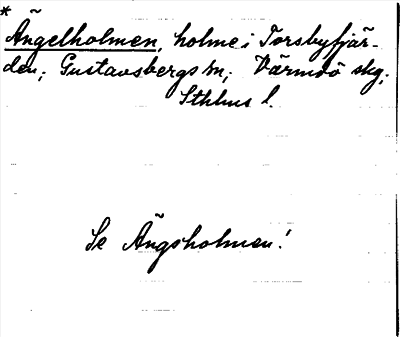 *
Ängelholmen, holme i Torsbyfjär-
den; Gustavsbergs sn; Värmdö skg;
Sthlms l.
Se Ängsholmen!